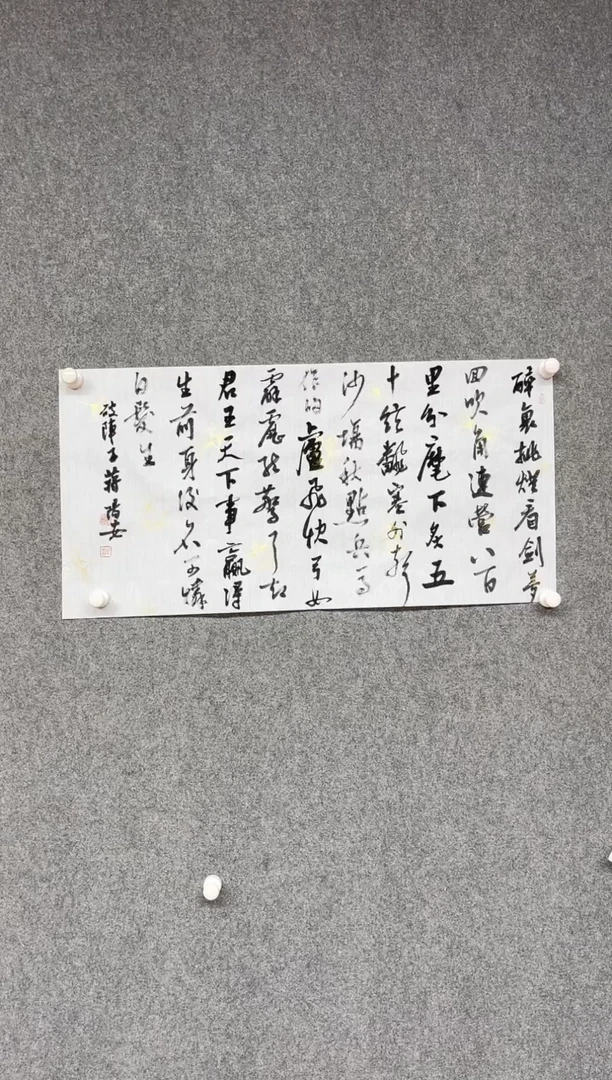 醉裏挑燈看劍夢
回吹角連營八百
里分麾下炙五
十絃翻塞外聲
沙場秋點兵馬
作的盧飛快弓如
霹靂絃驚了却
君王天下事贏得
生前身後名可憐
白髮生
破陣子蔣